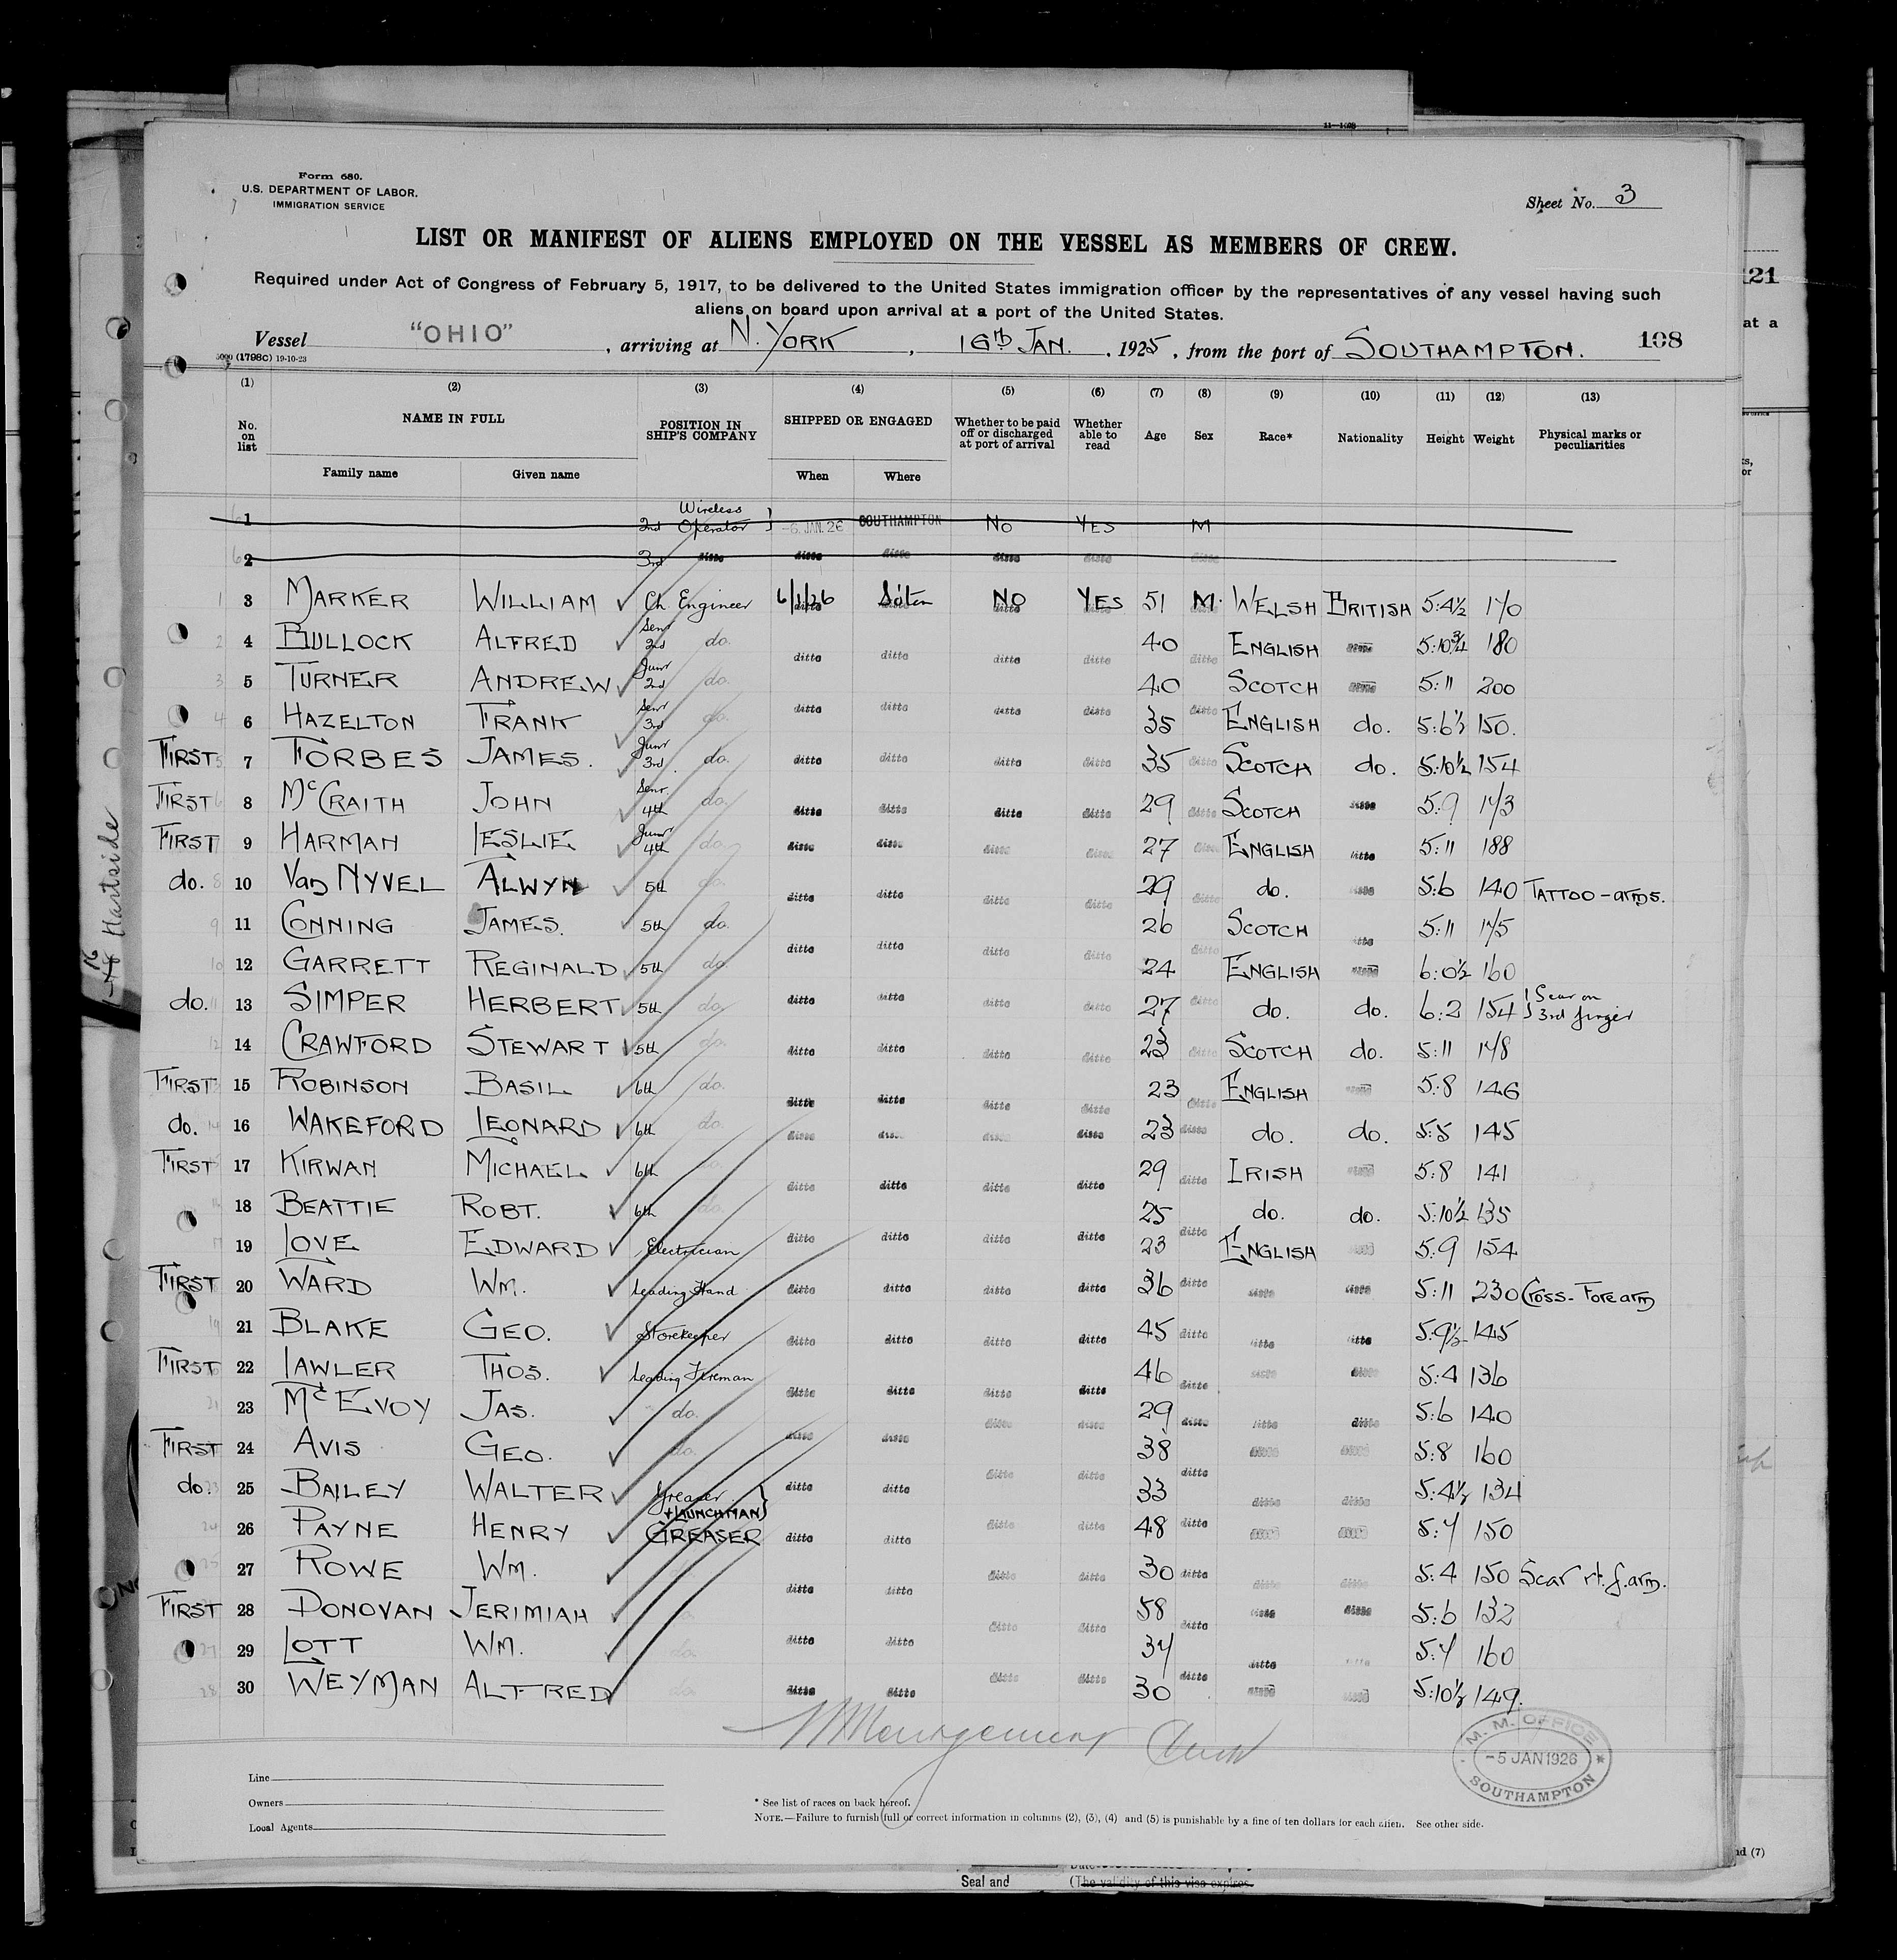 11—1098
Form 680.
U.S. DEPARTMENT OF LABOR.
IMMIGRATION SERVICE
Sheet No. 3
LIST OR MANIFEST OF ALIENS EMPLOYED ON THE VESSEL AS MEMBERS OF CREW.
Required under Act of Congress of February 5, 1917, to be delivered to the United States immigration officer by the representatives of any vessel having such
aliens on board upon arrival at a port of the United States.
121
at a
Vessel "OHIO", arriving at N. YORK, 16th JAN., 1925, from the port of SOUTHAMPTON. 108
5000 (1798C) 19-10-23
(1) (2) (3) (4) (5) (6) (7) (8) (9) (10) (11) (12) (13)
No. on list NAME IN FULL POSITION IN SHIP'S COMPANY SHIPPED OR ENGAGED Whether to be paid off or discharged at port of arrival Whether able to read Age Sex Race* Nationality Height Weight Physical marks or peculiarities
Family name Given name When Where
1 2nd Wireless Operator } -6 JAN. 26 SOUTHAMPTON NO YES M
2 3rd ditto ditto ditto ditto ditto ditto
1 3 MARKER WILLIAM ✓ Ch. Engineer 6/1/26 Soton NO YES 51 M. WELSH BRITISH 5:4½ 170
2 4 BULLOCK ALFRED ✓ Senr 2nd do. ditto ditto ditto ditto 40 ditto ENGLISH ditto 5:10¾ 180
3 5 TURNER ANDREW ✓ Junr 2nd do. ditto ditto ditto ditto 40 ditto SCOTCH ditto 5:11 200
4 6 HAZELTON FRANK ✓ Senr 3rd do. ditto ditto ditto ditto 35 ditto ENGLISH do. 5:6½ 150.
FIRST 5 7 FORBES JAMES. ✓ Junr 3rd do. ditto ditto ditto ditto 35 ditto SCOTCH do. 5:10½ 154
FIRST 6 8 McCRAITH JOHN ✓ Senr. 4th do. ditto ditto ditto ditto 29 ditto SCOTCH ditto 5:9 173
FIRST 7 9 HARMAN LESLIE ✓ Junr 4th do. ditto ditto ditto ditto 27 ditto ENGLISH ditto 5:11 188
do. 8 10 Van NYVEL ALWYN ✓ 5th do. ditto ditto ditto ditto 29 ditto do. ditto 5:6 140 TATTOO - arms.
9 11 CONNING JAMES. ✓ 5th do. ditto ditto ditto ditto 26 SCOTCH ditto 5:11 175
10 12 GARRETT REGINALD ✓ 5th do. ditto ditto ditto ditto 24 ENGLISH ditto 6:0½ 160
do. 11 13 SIMPER HERBERT ✓ 5th do. ditto ditto ditto ditto 27 ditto do. do. 6:2 154 } Scar on 3rd finger
12 14 CRAWFORD STEWART ✓ 5th do. ditto ditto ditto ditto 23 ditto SCOTCH do. 5:11 178
FIRST 13 15 ROBINSON BASIL ✓ 6th do. ditto ditto ditto ditto 23 ditto ENGLISH ditto 5:8 146
do. 14 16 WAKEFORD LEONARD ✓ 6th do. ditto ditto ditto ditto 23 ditto do. do. 5:5 145
FIRST 17 KIRWAN MICHAEL ✓ 6th ditto ditto ditto ditto 29 ditto IRISH ditto 5:8 141
18 BEATTIE ROBT. ✓ 6th do. ditto ditto ditto ditto 25 ditto do. do. 5:10½ 135
19 LOVE EDWARD ✓ Electrician 23 ENGLISH ditto 5:9 154
FIRST 20 WARD WM. ✓ Leading Hand ditto ditto ditto ditto 36 ditto ditto ditto 5:11 230 Cross - Forearm
19 21 BLAKE GEO. ✓ Storekeeper ditto ditto ditto ditto 45 ditto ditto ditto 5:9½ 145
FIRST 22 LAWLER THOS. ✓ Leading Fireman ditto ditto ditto ditto 46 ditto ditto ditto 5:4 136
21 23 McEVOY JAS. ✓ do. ditto ditto 29 ditto ditto ditto 5:6 140
FIRST 24 AVIS GEO. ✓ do. ditto ditto 38 ditto ditto ditto 5:8 160
do. 23 25 BAILEY WALTER ✓ Greaser + LAUNCHMAN } ditto ditto ditto ditto 33 ditto ditto 5:4½ 134
24 26 PAYNE HENRY ✓ GREASER ditto ditto ditto ditto 48 ditto ditto ditto 5:7 150
25 27 ROWE WM. ✓ ditto ditto ditto ditto 30 ditto ditto ditto 5:4 150 Scar rt. f. arm.
FIRST 28 DONOVAN JERIMIAH ✓ ditto ditto 58 ditto ditto ditto 5:6 132
27 29 LOTT WM. ✓ do. ditto ditto 37 ditto ditto 5:7 160
28 30 WEYMAN ALFRED ✓ do. ditto ditto ditto ditto 30 ditto ditto ditto 5:10½ 149.
Hartside
M. M. OFFICE
-5 JAN 1926
SOUTHAMPTON
Line
Owners
Local Agents
* See list of races on back hereof.
NOTE.—Failure to furnish full or correct information in columns (2), (3), (4) and (5) is punishable by a fine of ten dollars for each alien. See other side.
nd (7)
Seal and (The validity of this visa expires